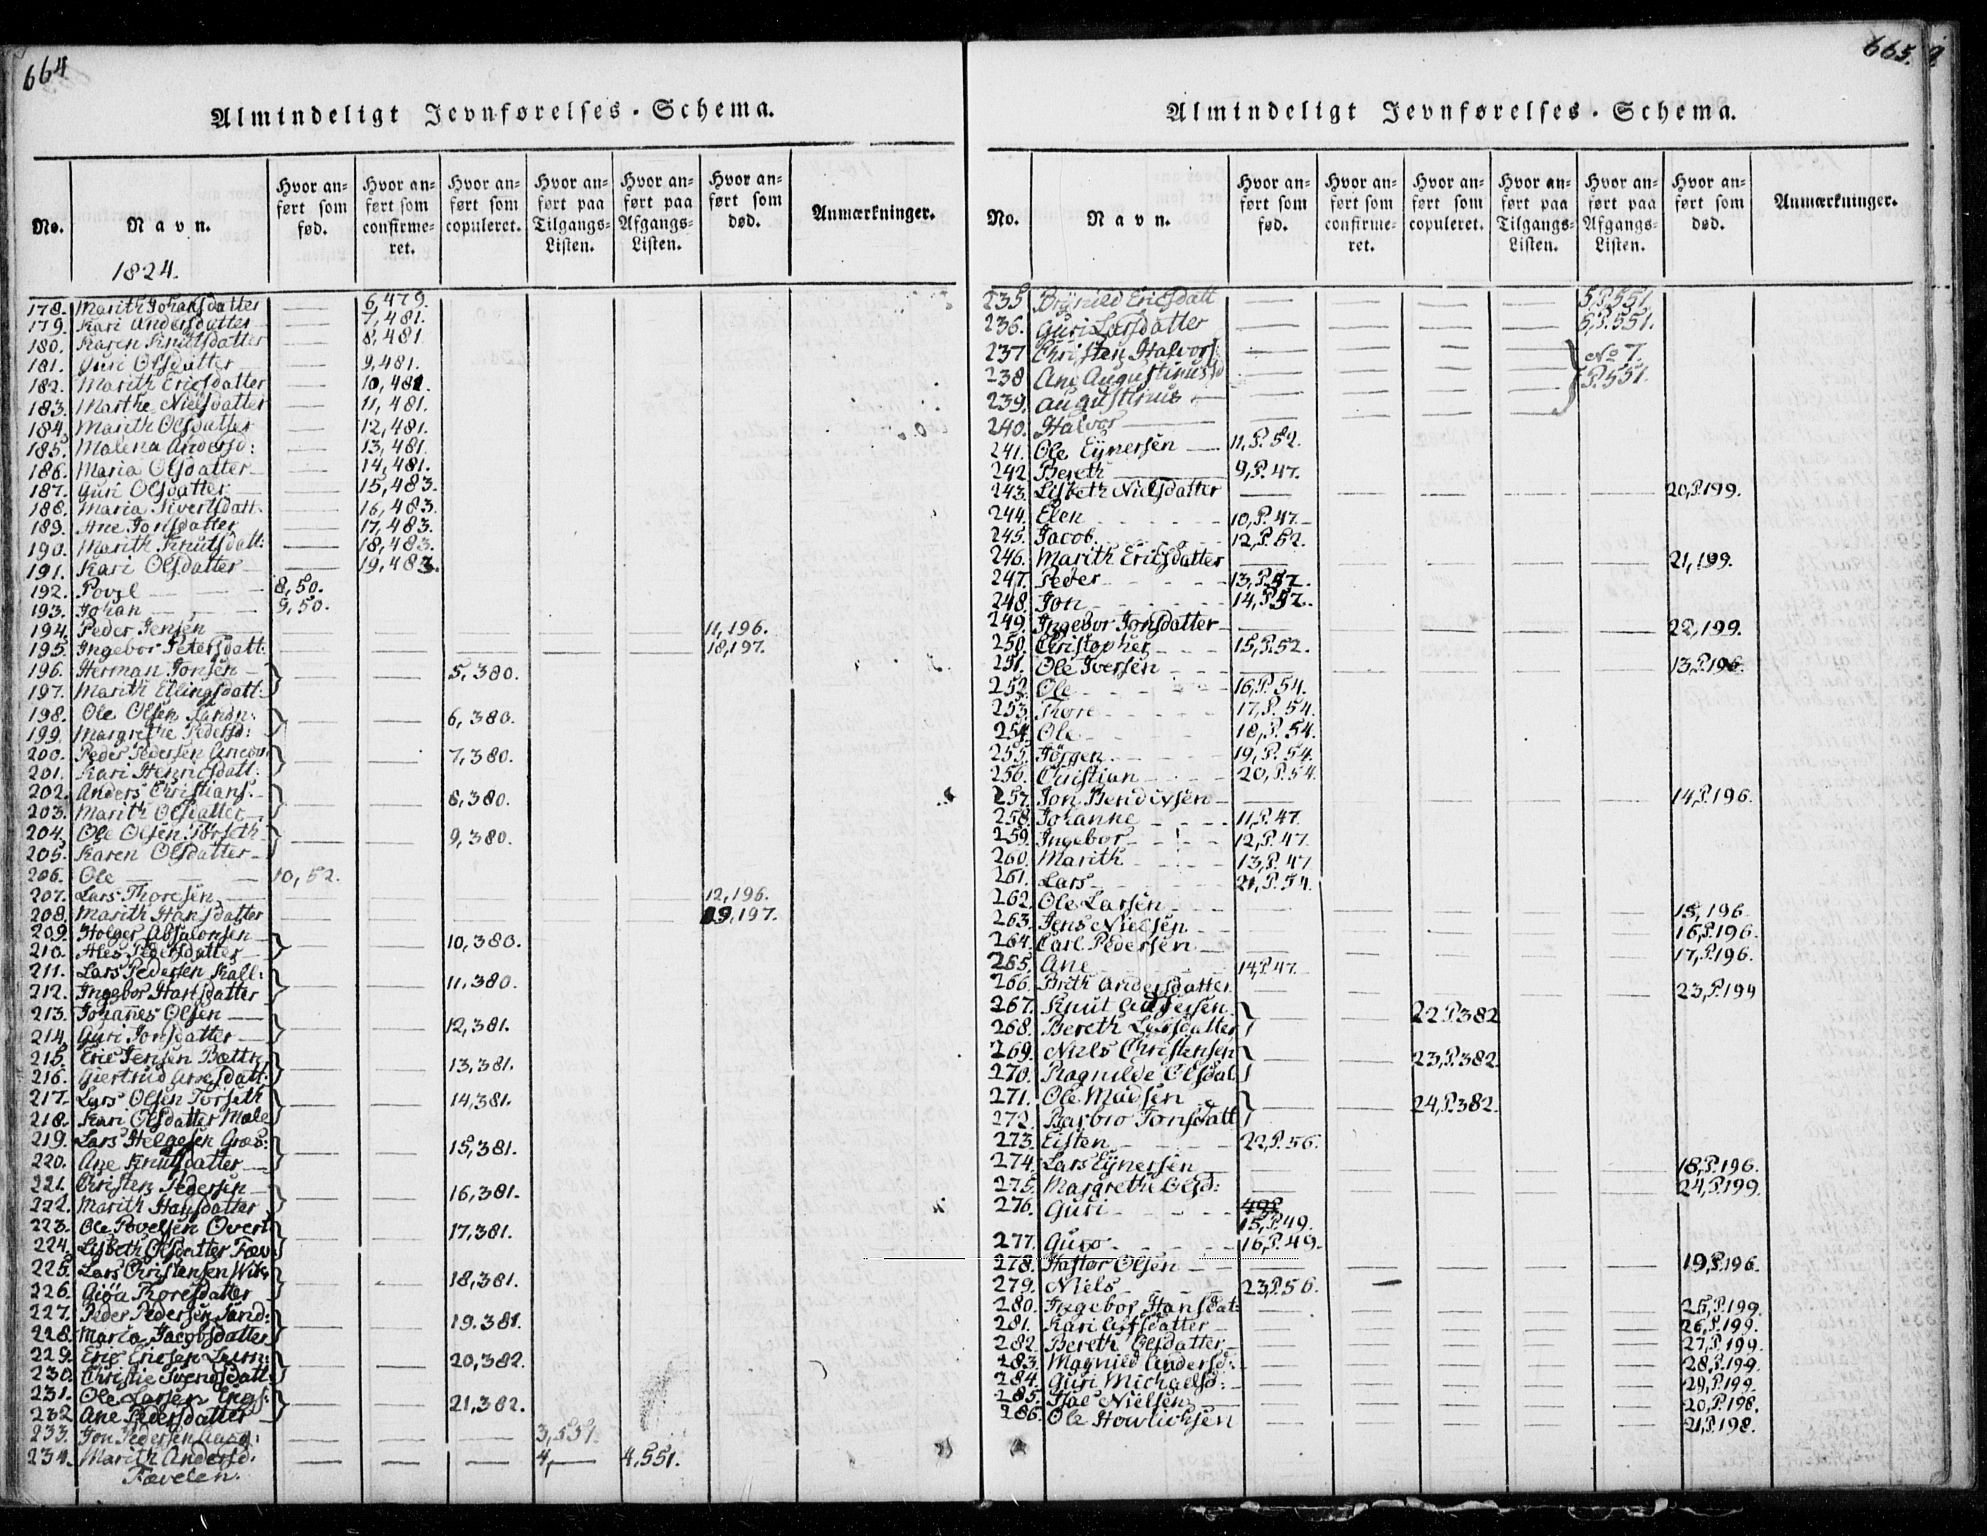 664
Almindeligt Jevnførelses-Schema.
No. Navn. Hvor anført som fød. Hvor anført som confirmeret. Hvor anført som copuleret. Hvor anført paa Tilgangs-Listen. Hvor anført paa Afgangs-Listen. Hvor anført som død. Anmærkninger.
1824.
178. Marith Johansdatter 6,479.
179. Kari Andersdatter 7,481.
180. Karen Knutsdatter 8,481
181. Guri Olsdatter 9,481.
182. Marith Ericsdatter 10,481.
183. Marthe Nielsdatter 11,481.
184. Marith Olsdatter 12,481.
185. Malena Andersd: 13,481
186. Maria Olsdatter 14,481.
187. Guri Olsdatter 15,483.
188. Maria Sivertsdatt. 16,483.
189. Ane Jonsdatter 17,483.
190. Marith Knutsdatt: 18,483.
191. Kari Olsdatter 19,483.
192. Povel 8,50.
193. Johan 9,50.
194. Peder Jensen 11,196.
195. Ingebor Petersdatt: 18,197.
196. Herman Jonsen 5,380.
197. Marith Ellingsdatt:
198. Ole Olsen Sandn: 6,380.
199. Margrethe Pedersd:
200. Peder Pedersen 7,380.
201. Kari Henricsdatt:
202. Anders Christians: 8,380.
203. Marith Olsdatter
204. Ole Olsen Torseth 9,380.
205. Karen Olsdatter
206. Ole 10,52.
207. Lars Thoresen 12,196.
208. Marith Hansdatter 19,197.
209. Holger Absalonsen 10,380.
210. Ales Pedersdatter
211. Lars Pedersen Kall: 11,380.
212. Ingebor Hansdatter
213. Johannes Olsen 12,381.
214. Guri Jonsdatter
215. Eric Jensen 13,381.
216. Giertrud Arnesdatt:
217. Lars Olsen Torseth 14,381.
218. Kari Olsdatter Mæle
219. Lars Helgesen Græs: 15,381.
220. Ane Knutsdatter
221. Christen Pedersen 16,381.
222. Marith Hansdatter
223. Ole Povelsen 17,381.
224. Lisbeth Olsdatter Fæv:
225. Lars Christensen Wik: 18,381.
226. Giøa Thoresdatter
227. Peder Pedersen Sand: 19.381.
228. Maria Jacobsdatter
229. Eric Ericsen 20,382.
230. Christie Svendsdatt:
231. Ole Larsen Engs: 21,382.
232 Ane Pedersdatter
233. Jon Pedersen 3,551.
234. Marith Andersd. 4, 4,551.
Fævelen.
665.
Almindeligt Jevnførelses-Schema.
No. Navn. Hvor anført som fød. Hvor anført som confirmeret. Hvor anført som copuleret. Hvor anført paa Tilgangs-Listen. Hvor anført paa Afgangs-Listen. Hvor anført som død. Anmærkninger.
235 Brynild Ericsdatt 5,P.551.
236. Guri Larsdatter 6,P.551.
237 Christen Halvors: No 7.
238 Ane Augustinusd P.551.
239. Augustinus
240. Halvor
241. Ole Eynersen 11,P.52.
242. Bereth 9,P.47.
243. Lisbeth Nielsdatter 20,P.199.
244. Elen 10,P.47.
245. Jacob 12,P.52.
246. Marith Ericsdatter 21,199.
247. Peder 13,P.52.
248. Jon 14,P.52.
249. Ingebor Jonsdatter 22,199.
250. Christopher 15,P.52.
251. Ole Iversen 13,P.196.
252. Ole 16,P.54.
253. Thore 17,P.54.
254. Ole 18,P.54.
255. Jörgen 19,P.54.
256. Christian 20,P.54.
257. Jon Bendixsen 14,P.196.
258. Johanne 11,P.47.
259. Ingebor 12,P.47.
260. Marith 13,P.47
261. Lars 21,P.54.
262. Ole Larsen 15,196
263. Jens Nielsen 16,P.196.
264. Carl Pedersen 17,P.196.
265. Ane 14,P.47.
266. Brith Andersdatter 23,P.199
267. Knut 22.P.382
268. Bereth Larsdatter
269. Niels Christensen 23,P.382.
270. Ragnilde Olsdat.
271. Ole Madsen 24,P.382.
272. Barbro Jonsdatt
273. Eisten 22,P.56.
274. Lars Eynersen 18,P.196.
275. Margreth Olsd: 24,P.199.
276. Guri 15,P.49.
277. Guro 16,P.49.
278. Haftor Olsen 19,P.196.
279. Niels 23,P.56.
280. Ingebor Hansdat: 25,P.199.
281. Kari Olsdatter 26,P.199.
282. Bereth Olsdatter 27,P.199
283. Magnild Andersd: 28,P.199.
284. Guri Michaelsd: 29,P.199.
285. Nielsen 20,P.198.
286. Ole 21,P.198.